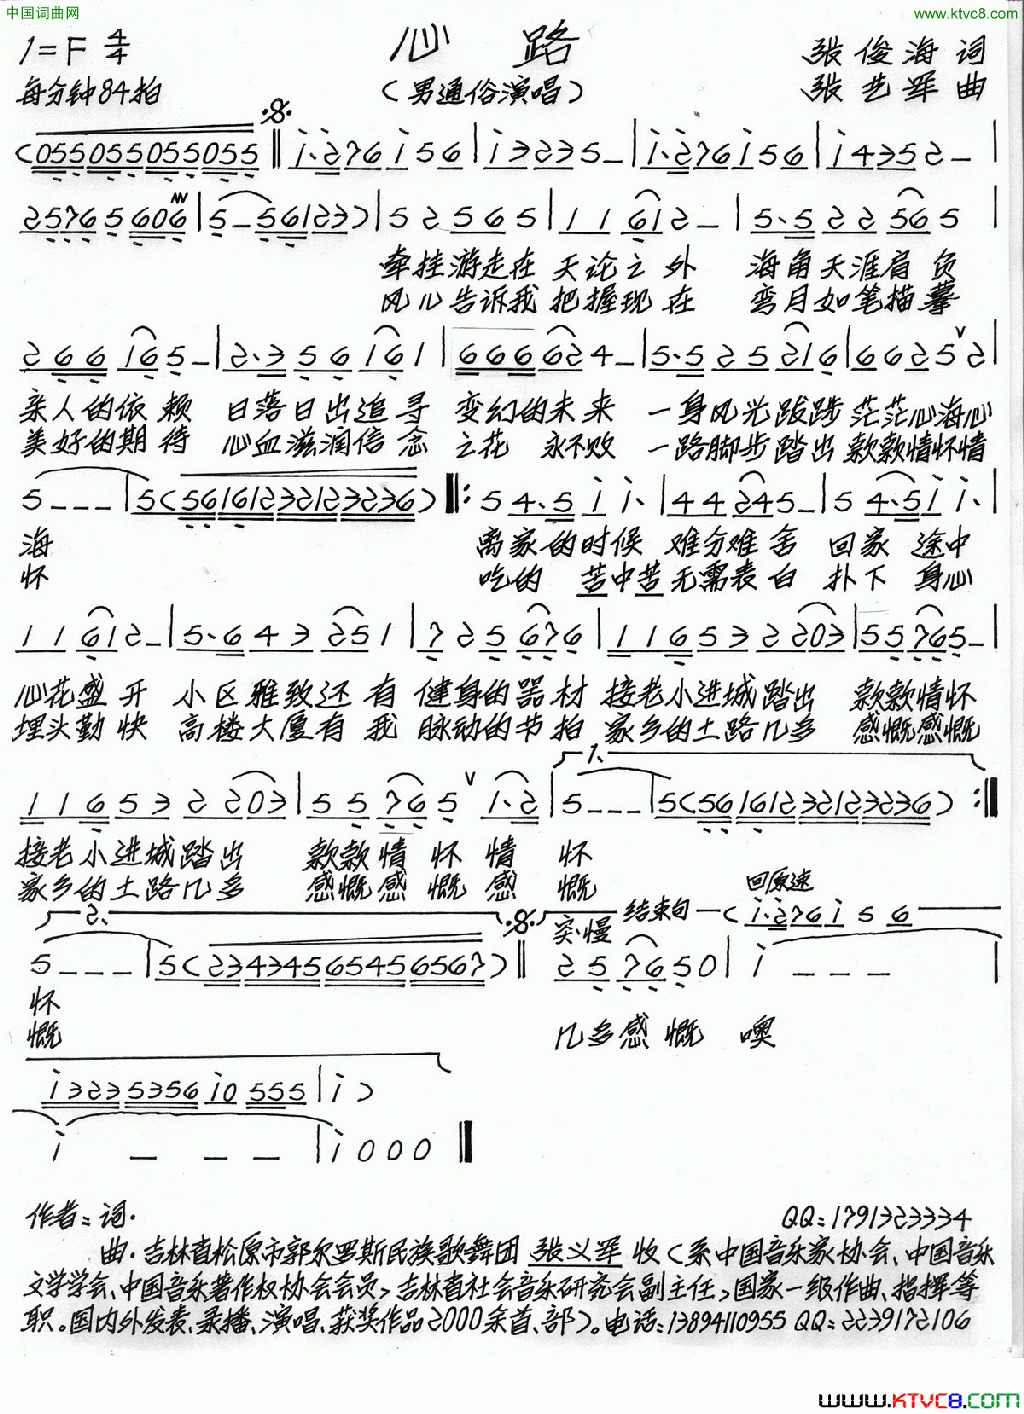 中国词曲网
www.ktvc8.com
1=F 4/4
心 路
张俊海 词
每分钟84拍
（男通俗演唱）
张艺军 曲
(055055055055‖i·276i56|i3235-|i·276i56|i4352-|
25765606|5-56123)|52565|11612-|5·522565
牵挂游走在天论之外 海角天涯肩负
风儿告诉我把握现在 弯月如笔描摹
266165-|2·356161|6666624-|5·5252165|66252
亲人的依赖 日落日出追寻 变幻的未来 一身风光跋跣茫茫心海心
美好的期待 心血滋润信念 之花 永不败 一路脚步踏出款款情怀情
5---|5(56161232123236)‖:54·5ii·|44245-|54·5ii·|
海 离家的时候 难分难舍 回家 途中
怀 吃的 苦中苦无需表白 扑下 身心
11612-|5·643251|725676|116532203|55765-|
心花盛开 小区雅致还有 健身的器材 接老小进城踏出 款款情怀
埋头勤快 高楼大厦有 我 脉动的节拍 家乡的土路几多 感慨感慨
1.
116532203|557651·2|5---|5(56161232123236):‖
接老小进城踏出 款款情怀情 怀
家乡的土路几多 感慨感慨感 慨
2.
突慢
结束句
回原速
(i·276i56
5---|5(2343456545656 7)‖257650|i---|
怀
慨 几多感慨 噢
i3235356i0555|i)
i---|i000‖
作者：词·
QQ：1791323334
曲·吉林省松原市郭尔罗斯民族歌舞团 张义军 收（系中国音乐家协会、中国音乐
文学学会、中国音乐著作权协会会员，吉林省社会音乐研究会副主任，国家一级作曲、指挥等
职。国内外发表、录播、演唱、获奖作品2000余首、部）。电话：13894110955 QQ：2239172106
www.KTVC8.com